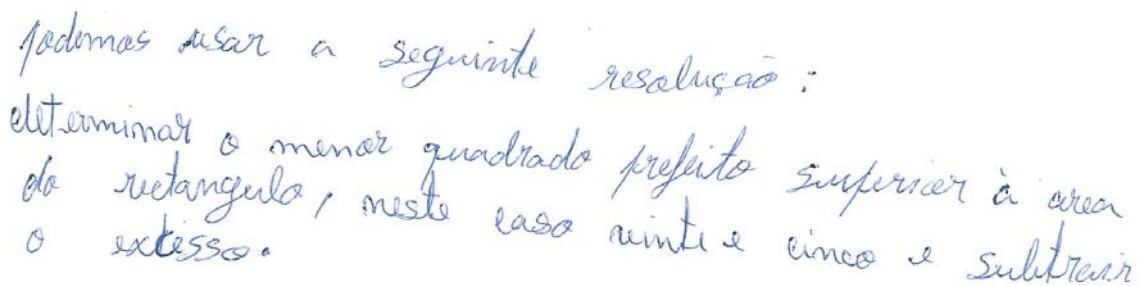 podemos usar a seguinte resolução:
determinar o menor quadrado prefeito superior à area
do rectangulo, neste caso vinte e cinco e subtrair
o excesso.